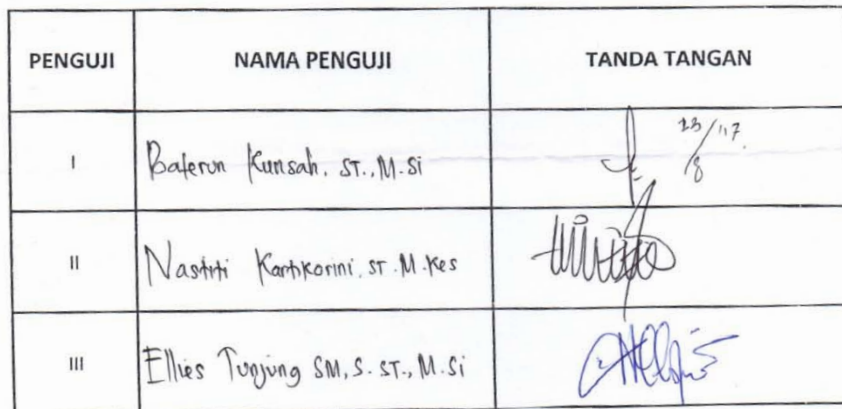 PENGUJI NAMA PENGUJI TANDA TANGAN
I Baterun Kunsah, ST., M.Si 23/8 '17
II Nastiti Kartikorini, ST. M.Kes
III Ellies Tunjung SM, S.ST., M.Si